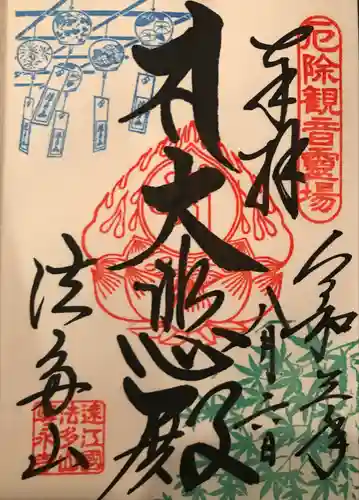 厄除観音霊場
奉拝
令和三年
八月六日
大悲殿
法多山
遠江國
法多山